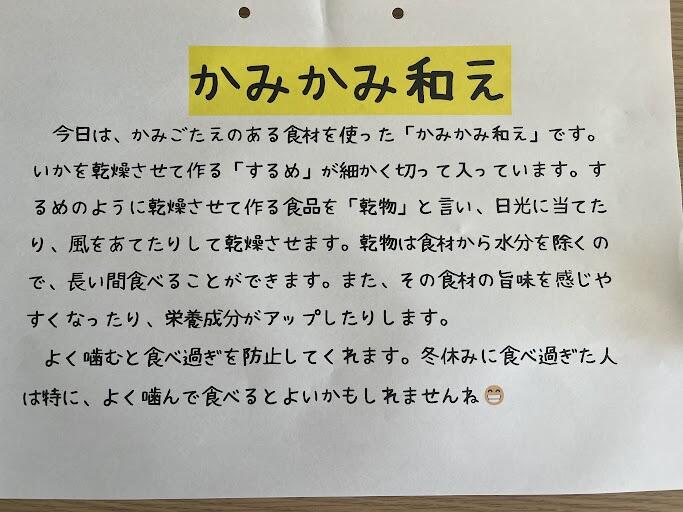 かみかみ和え
今日は、かみごたえのある食材を使った「かみかみ和え」です。
いかを乾燥させて作る「するめ」が細かく切って入っています。す
るめのように乾燥させて作る食品を「乾物」と言い、日光に当てた
り、風をあてたりして乾燥させます。乾物は食材から水分を除くの
で、長い間食べることができます。また、その食材の旨味を感じや
すくなったり、栄養成分がアップしたりします。
よく噛むと食べ過ぎを防止してくれます。冬休みに食べ過ぎた人
は特に、よく噛んで食べるとよいかもしれませんね😁